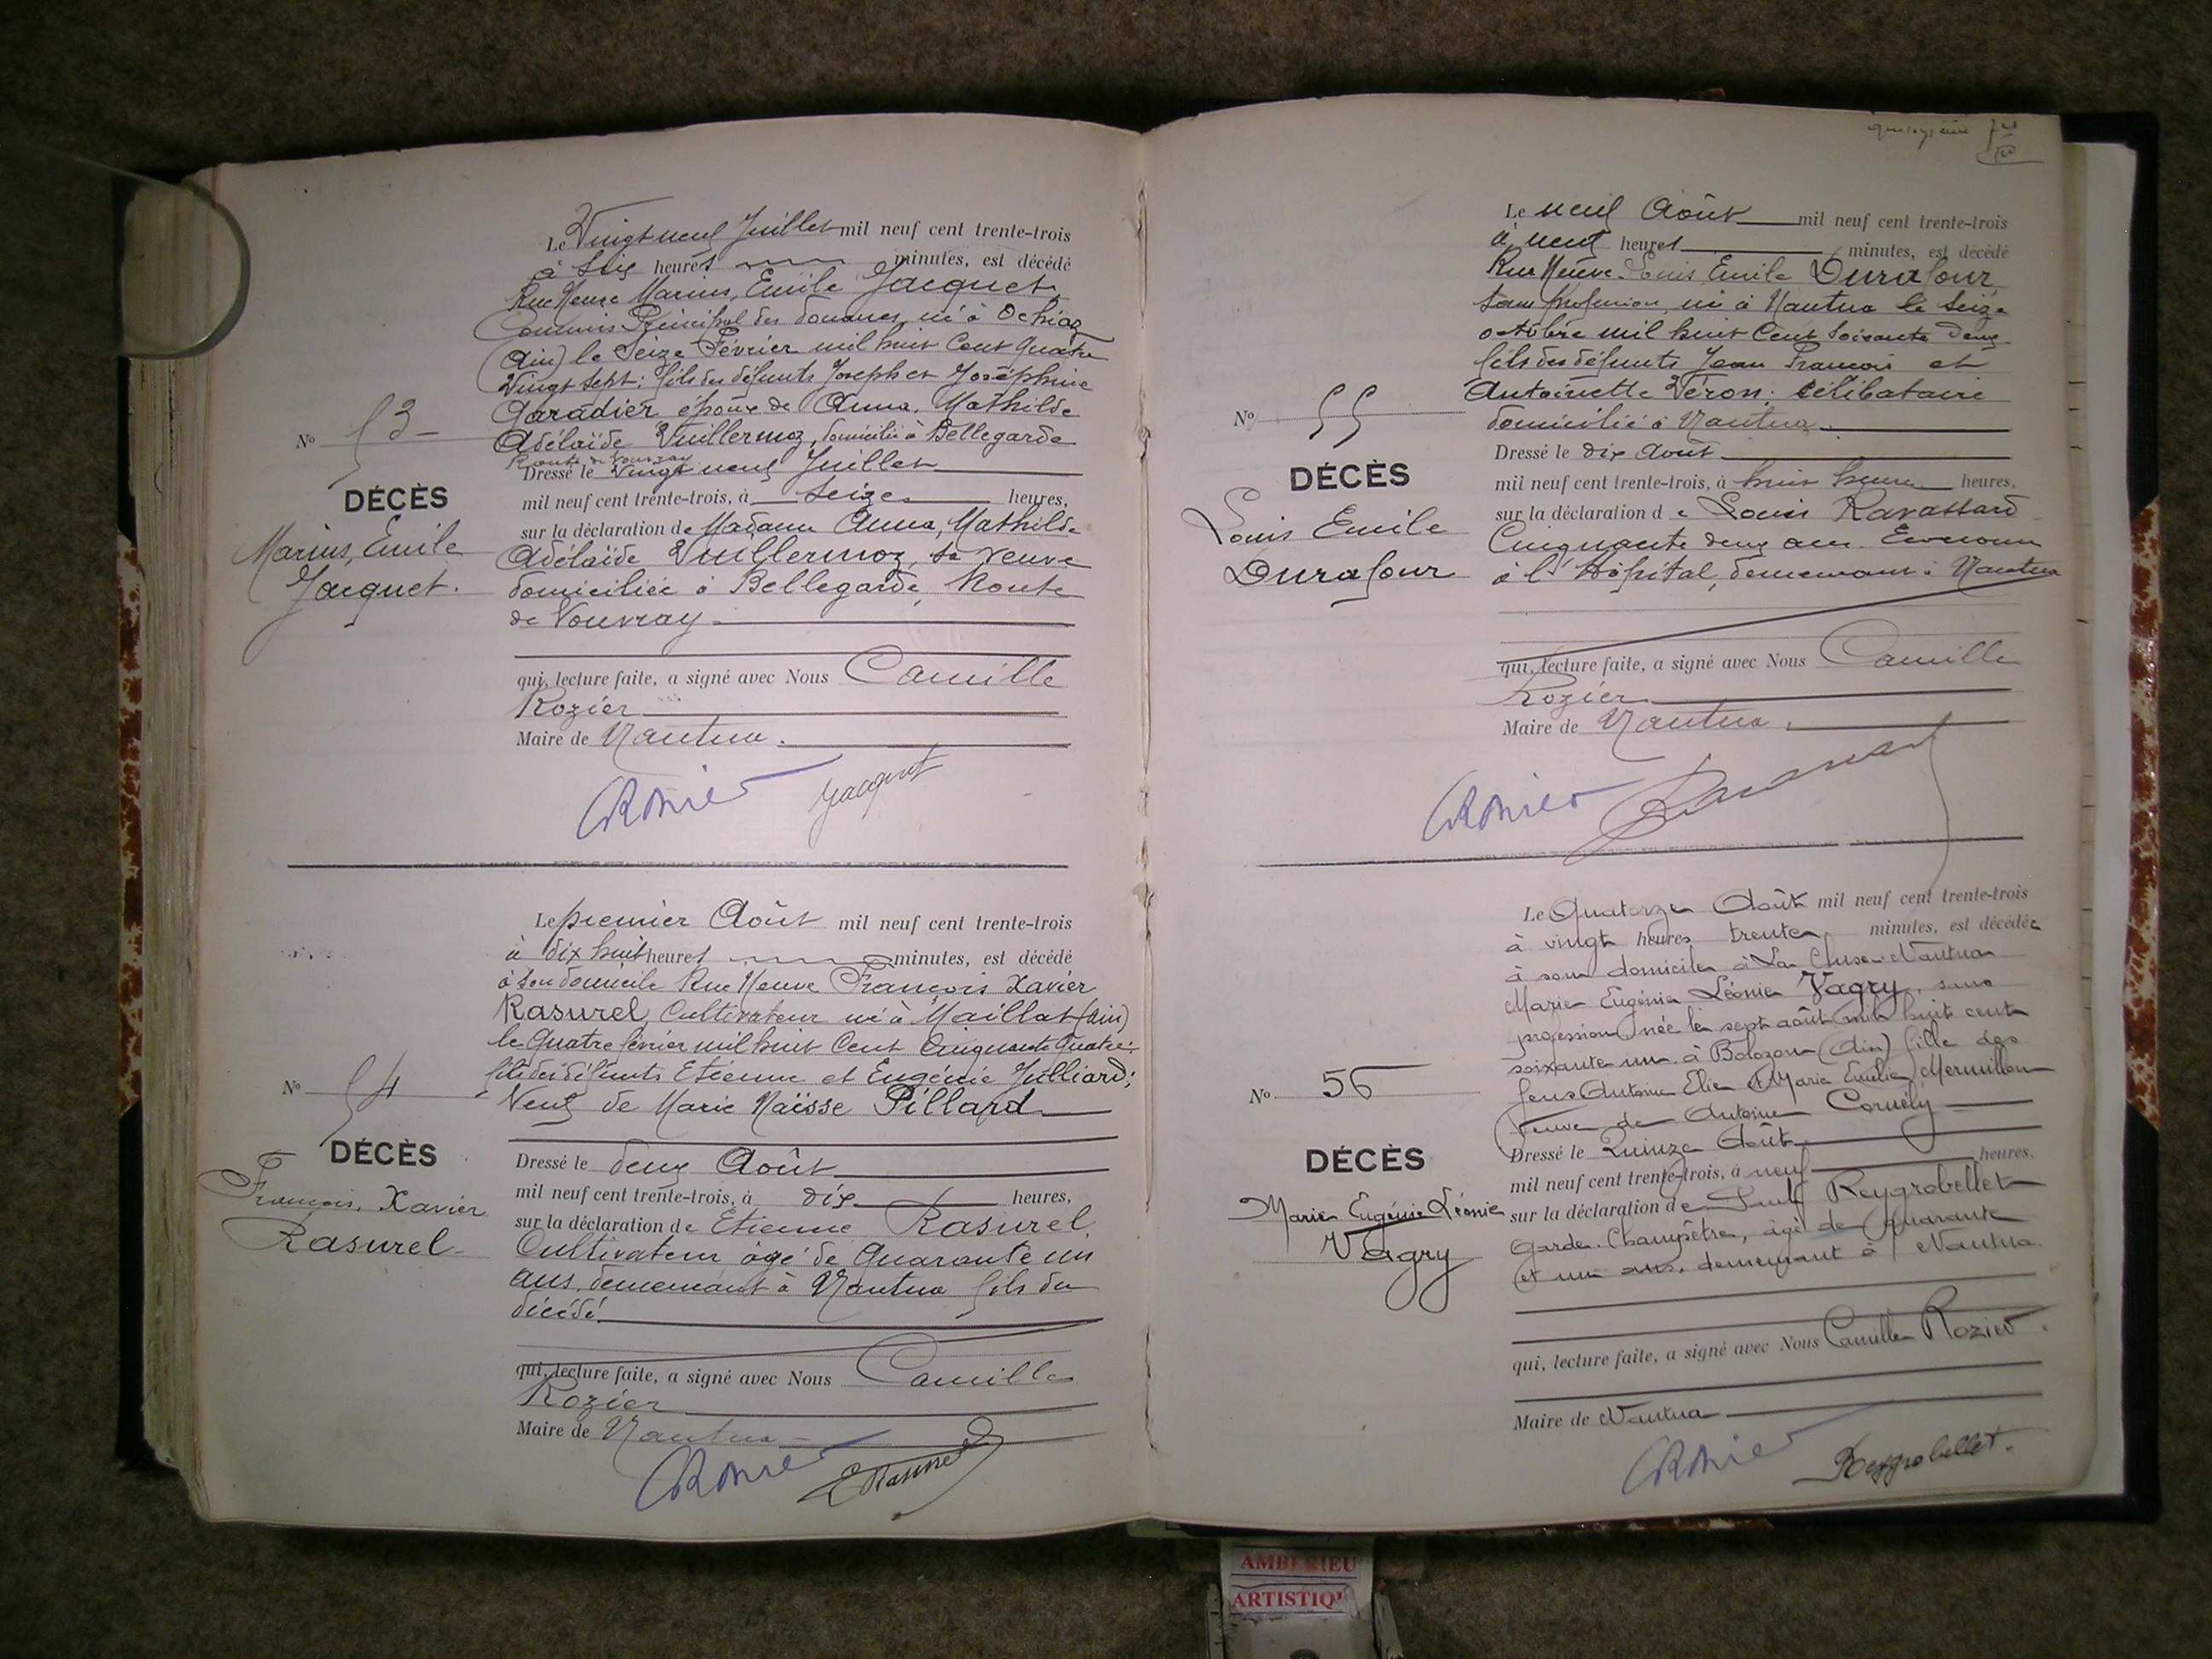 Le Vingt neuf Juillet mil neuf cent trente-trois
à Six heures minutes, est décédé
Rue Neuve Marius, Emile Jacquet
Commis Principal des douanes, né à Ochiaz
(Ain) le Seize Février mil huit Cent Quatre
Vingt Sept; fils des défunts Joseph et Joséphine
Garadier époux de Anna, Mathilde
Adélaïde Vuillermoz, domicilié à Bellegarde
Route de Vouvray
Dressé le Vingt neuf Juillet
mil neuf cent trente-trois, à Seize heures,
sur la déclaration de Madame Anna, Mathilde
Adélaïde Vuillermoz, sa veuve
domiciliée à Bellegarde, Route
de Vouvray
qui, lecture faite, a signé avec Nous Camille
Rozier
Maire de Nantua.
CRozier Jacquet
No 53
DÉCÈS
Marius, Emile
Jacquet.
Le premier Août mil neuf cent trente-trois
à dix huit heures minutes, est décédé
à son domicile Rue Neuve François Xavier
Rasurel, Cultivateur né à Maillat (Ain)
le Quatre février mil huit Cent Cinquante Quatre;
fils des défunts Etienne et Eugénie Julliard;
Veuf de Marie Naïsse Pillard
Dressé le deux Août
mil neuf cent trente-trois, à dix heures,
sur la déclaration de Etienne Rasurel,
Cultivateur âgé de Quarante un
ans, demeurant à Nantua fils du
décédé
qui, lecture faite, a signé avec Nous Camille
Rozier
Maire de Nantua
CRozier E Rasurel
No 54
DÉCÈS
François, Xavier
Rasurel
Le neuf Août mil neuf cent trente-trois
à neuf heures minutes, est décédé
Rue Neuve Louis Emile Durafour
sans profession, né à Nantua le Seize
octobre mil huit Cent Soixante Deux
fils des défunts Jean François et
Antoinette Véron; célibataire
domicilié à Nantua
Dressé le dix Août
mil neuf cent trente-trois, à huit heures heures,
sur la déclaration de Louis Ravassard
Cinquante deux ans. Econome
à l'Hôpital, demeurant à Nantua
qui, lecture faite, a signé avec Nous Camille
Rozier
Maire de Nantua.
CRozier Ravassard
No 55
DÉCÈS
Louis Emile
Durafour
Le Quatorze Août mil neuf cent trente-trois
à vingt heures trente minutes, est décédée
à son domicile à La Cluse-Nantua
Marie Eugénie Léonie Vagry, sans
profession, née le sept août mil huit cent
soixante un à Bolozon (Ain) fille des
feus Antoine Elie et Marie Emélie Mermillon
Veuve de Antoine Cornély
Dressé le Quinze Août
mil neuf cent trente-trois, à neuf heures,
sur la déclaration de Paul Reygrobellet
Garde-Champêtre, âgé de quarante
et un ans, demeurant à Nantua
qui, lecture faite, a signé avec Nous Camille Rozier.
Maire de Nantua
CRozier Reygrobellet.
No 56
DÉCÈS
Marie Eugénie Léonie
Vagry
AMBERIEU
ARTISTIQ